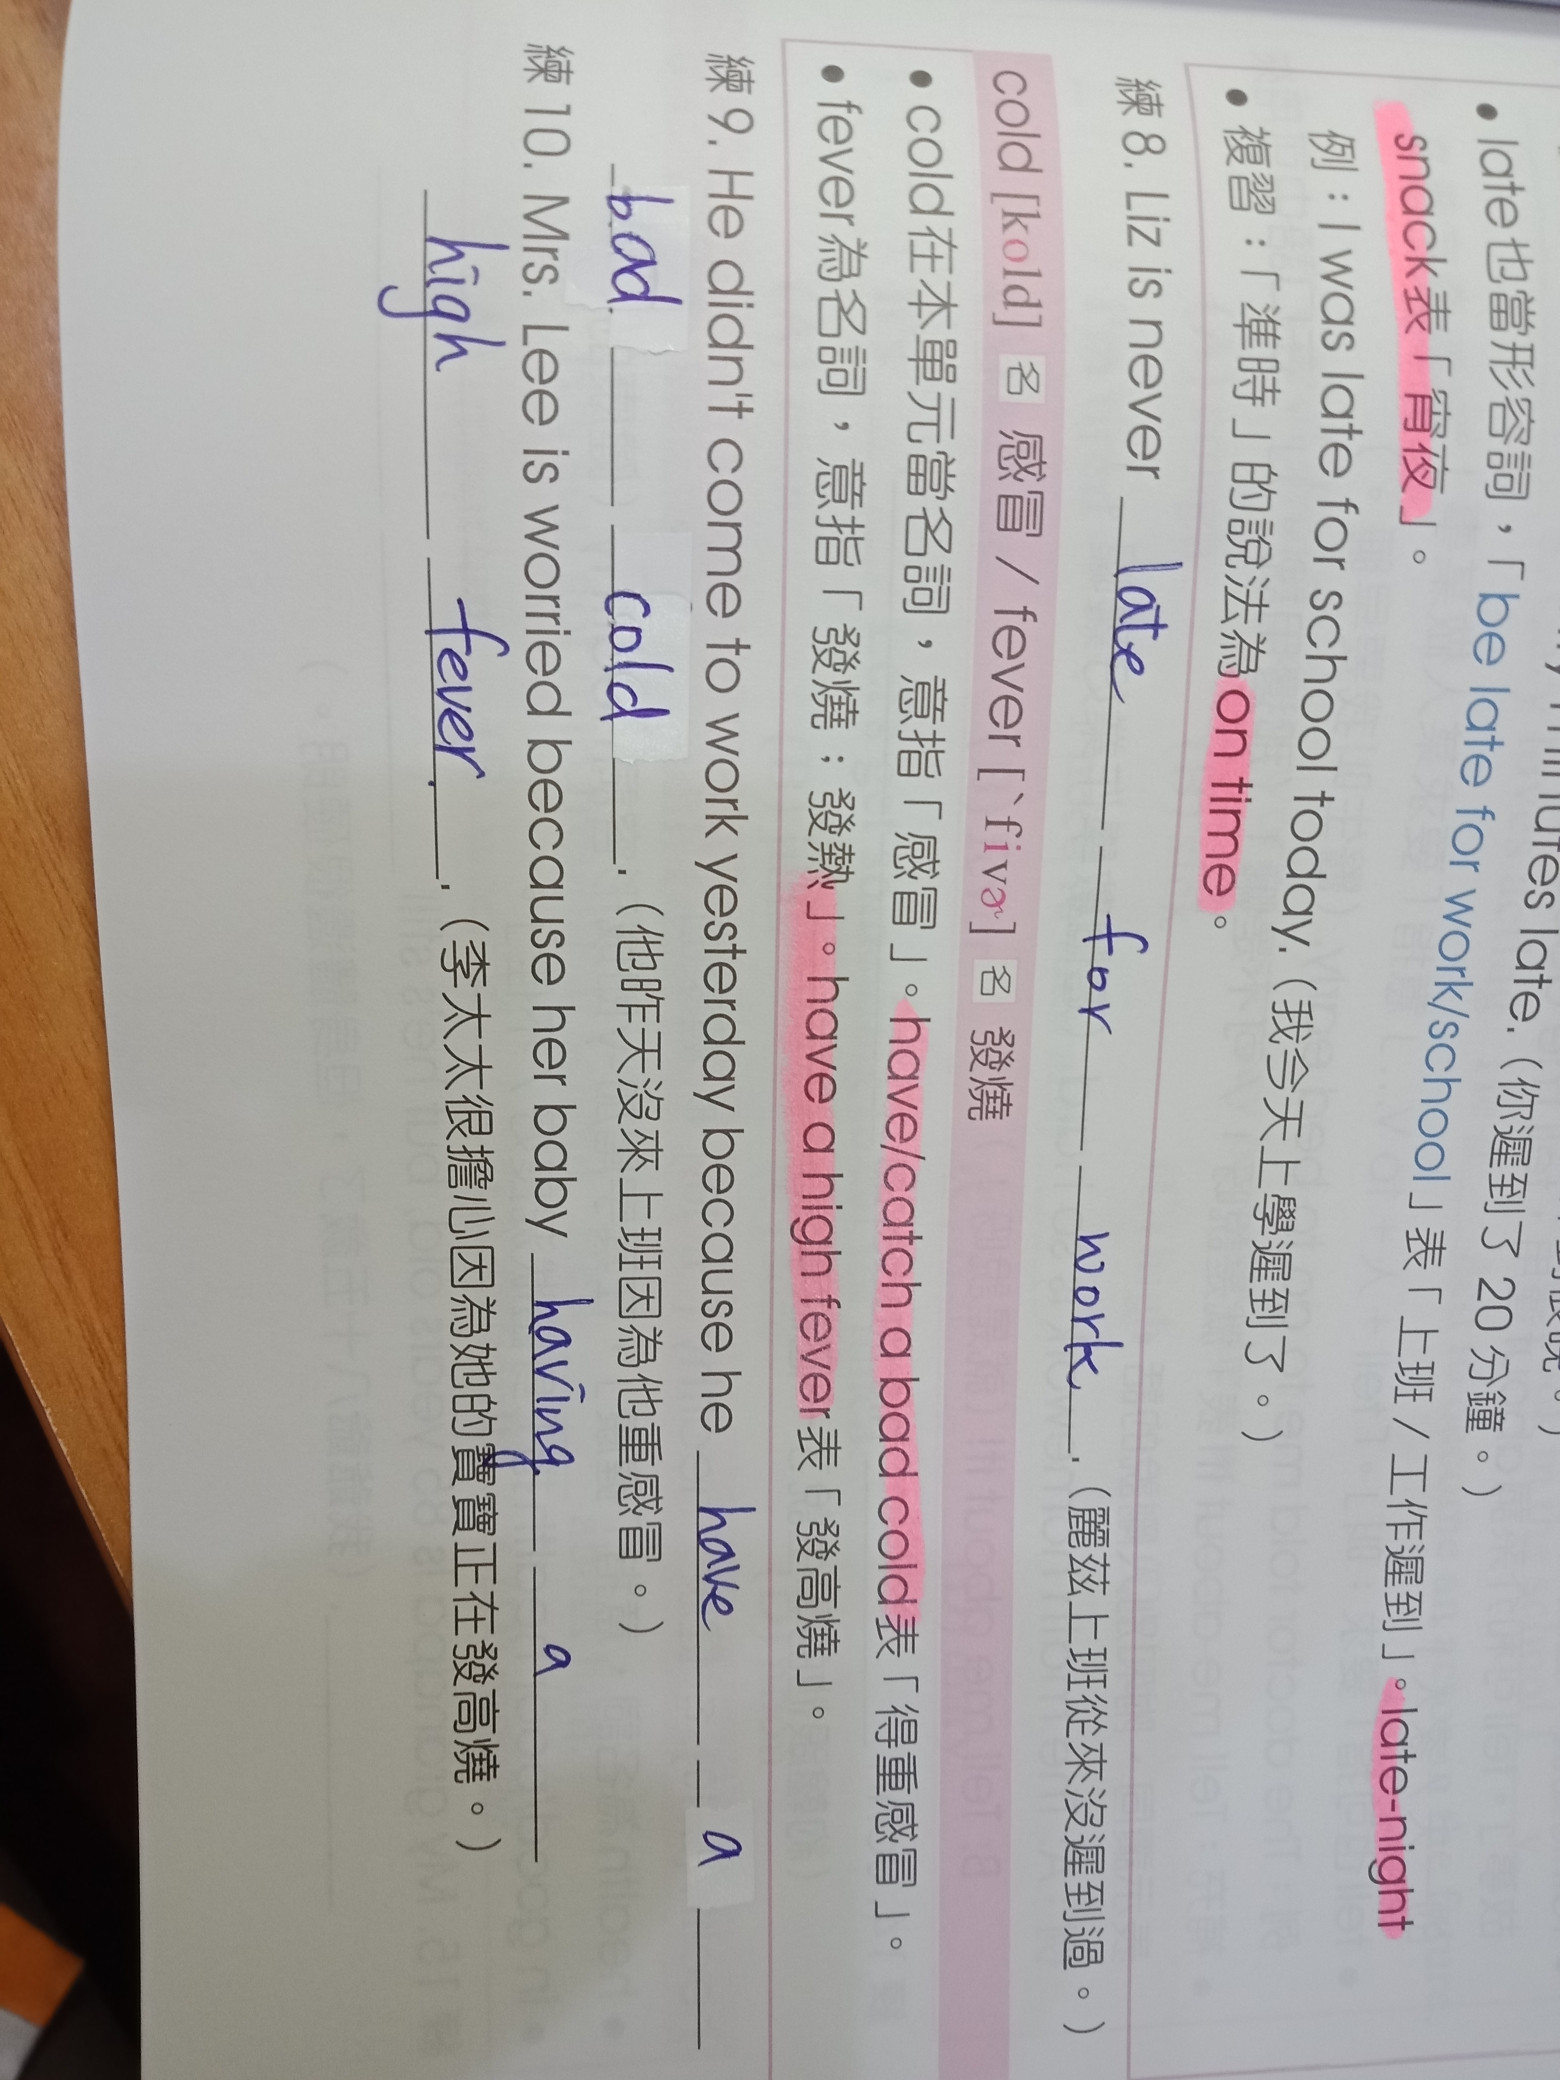 nutes late.（你遲到了 20 分鐘。）
• late也當形容詞，「be late for work/school」表「上班 / 工作遲到」。late-night
snack表「宵夜」。
例：I was late for school today.（我今天上學遲到了。）
• 複習：「準時」的說法為on time。
練 8. Liz is never late for work.（麗茲上班從來沒遲到過。）
cold [kold] 名 感冒 / fever [ˋfivɚ] 名 發燒
• cold在本單元當名詞，意指「感冒」。have/catch a bad cold表「得重感冒」。
• fever為名詞，意指「發燒；發熱」。have a high fever表「發高燒」。
練 9. He didn't come to work yesterday because he have a
bad cold.（他昨天沒來上班因為他重感冒。）
練 10. Mrs. Lee is worried because her baby having a
high fever.（李太太很擔心因為她的寶寶正在發高燒。）